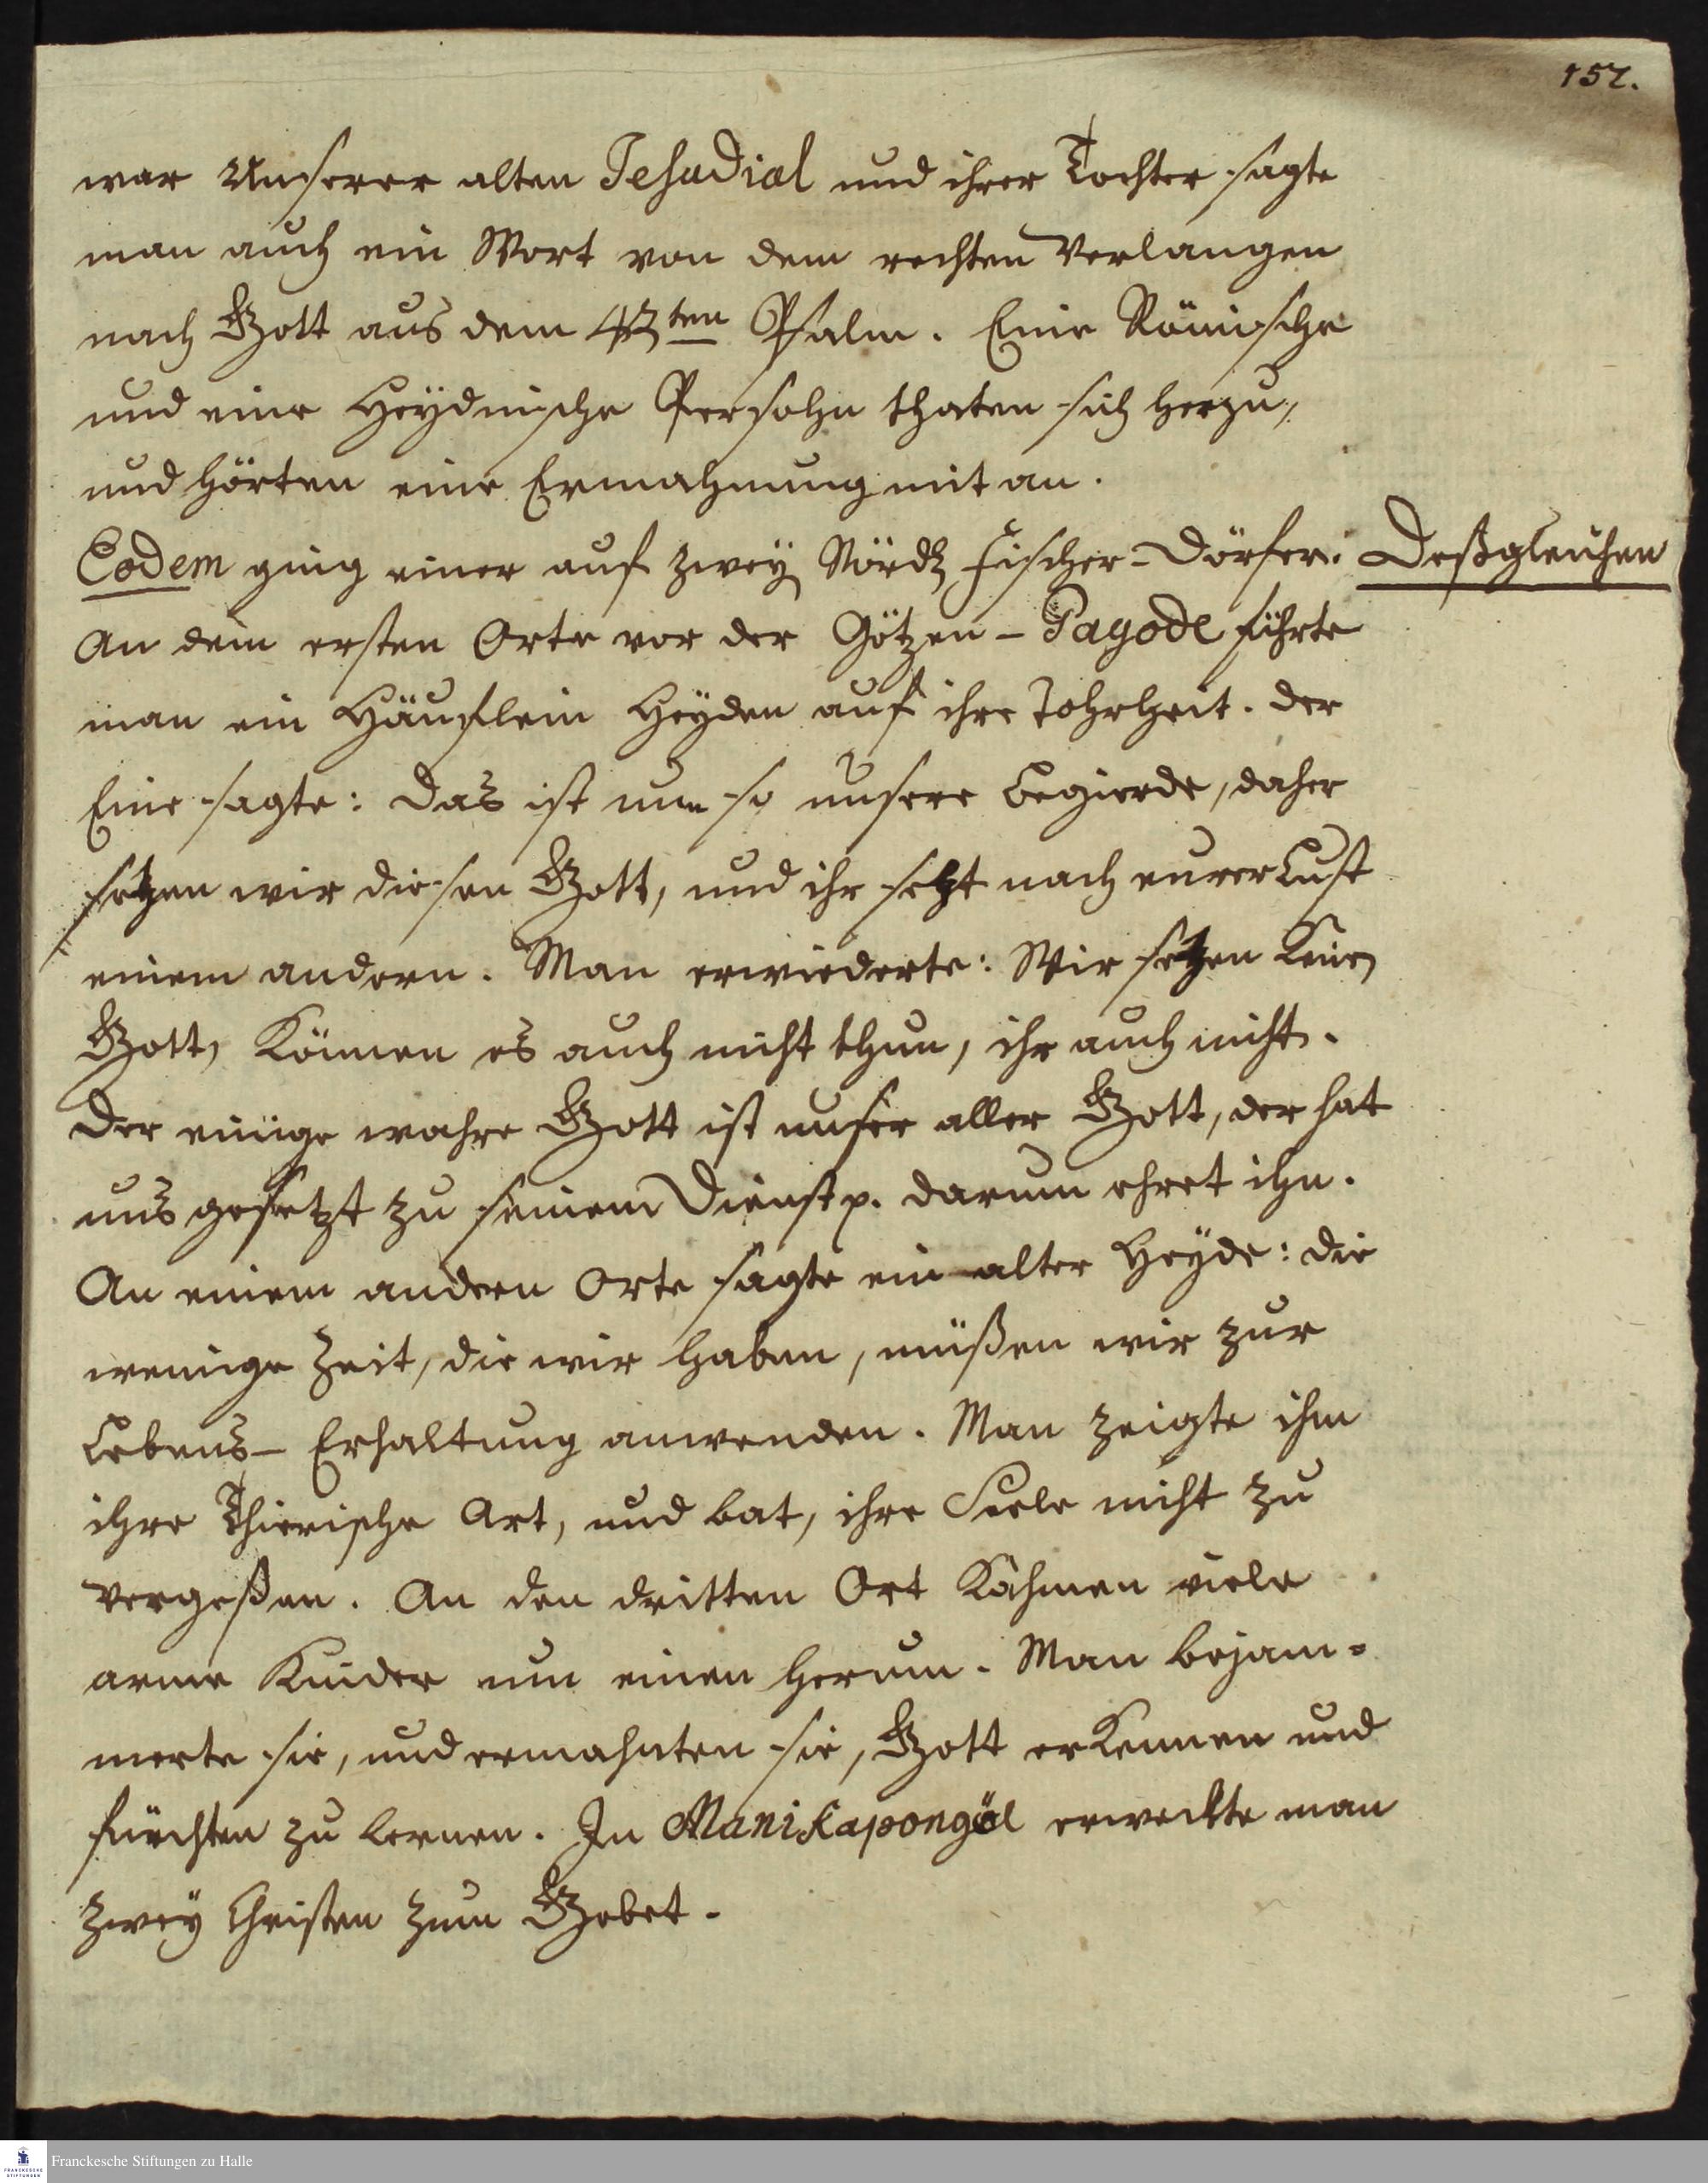 157.
war Unserer alten Jesudial und ihrer Tochter sagte
man auch ein Wort von dem rechten Verlangen
nach Gott aus dem 42ten Psalm. Eine Römische
und eine Heydnische Persohn thaten sich herzu,
und hörten eine Ermahnung mit an.
Eodem ging einer auf zwey Nördl. Fischer-Dörfer. Deßgleichen
An dem ersten Orte vor der Götzen-Pagode führte
man ein Häuflein Heyden auf ihre Tohrheit. Der
Eine sagte: Das ist nun so unsere Begierde, daher
setzen wir diesen Gott, und ihr setzt nach eurer Lust
einem andern. Man erwiederte: Wir setzen Keinen
Gott, Können es auch nicht thun, ihr auch nicht.
Der einige wahre Gott ist unser aller Gott, der hat
uns gesetzt zu seinem Dienst p. darum ehret ihn.
An einem andern Orte sagte ein alter Heyde: die
wenige Zeit, die wir haben, müßen wir zur
Lebens-Erhaltung anwenden. Man zeigte ihm
ihre Thierische Art, und bat, ihre Seele nicht zu
vergeßen. An den dritten Ort Kähmen viele
arme Kinder um einen herum. Man bejam-
merte sie, und ermahnten sie, Gott erkennen und
fürchten zu lernen. In Manikapongöl erweckte man
zwey Christen zum Gebet.
Franckesche Stiftungen zu Halle